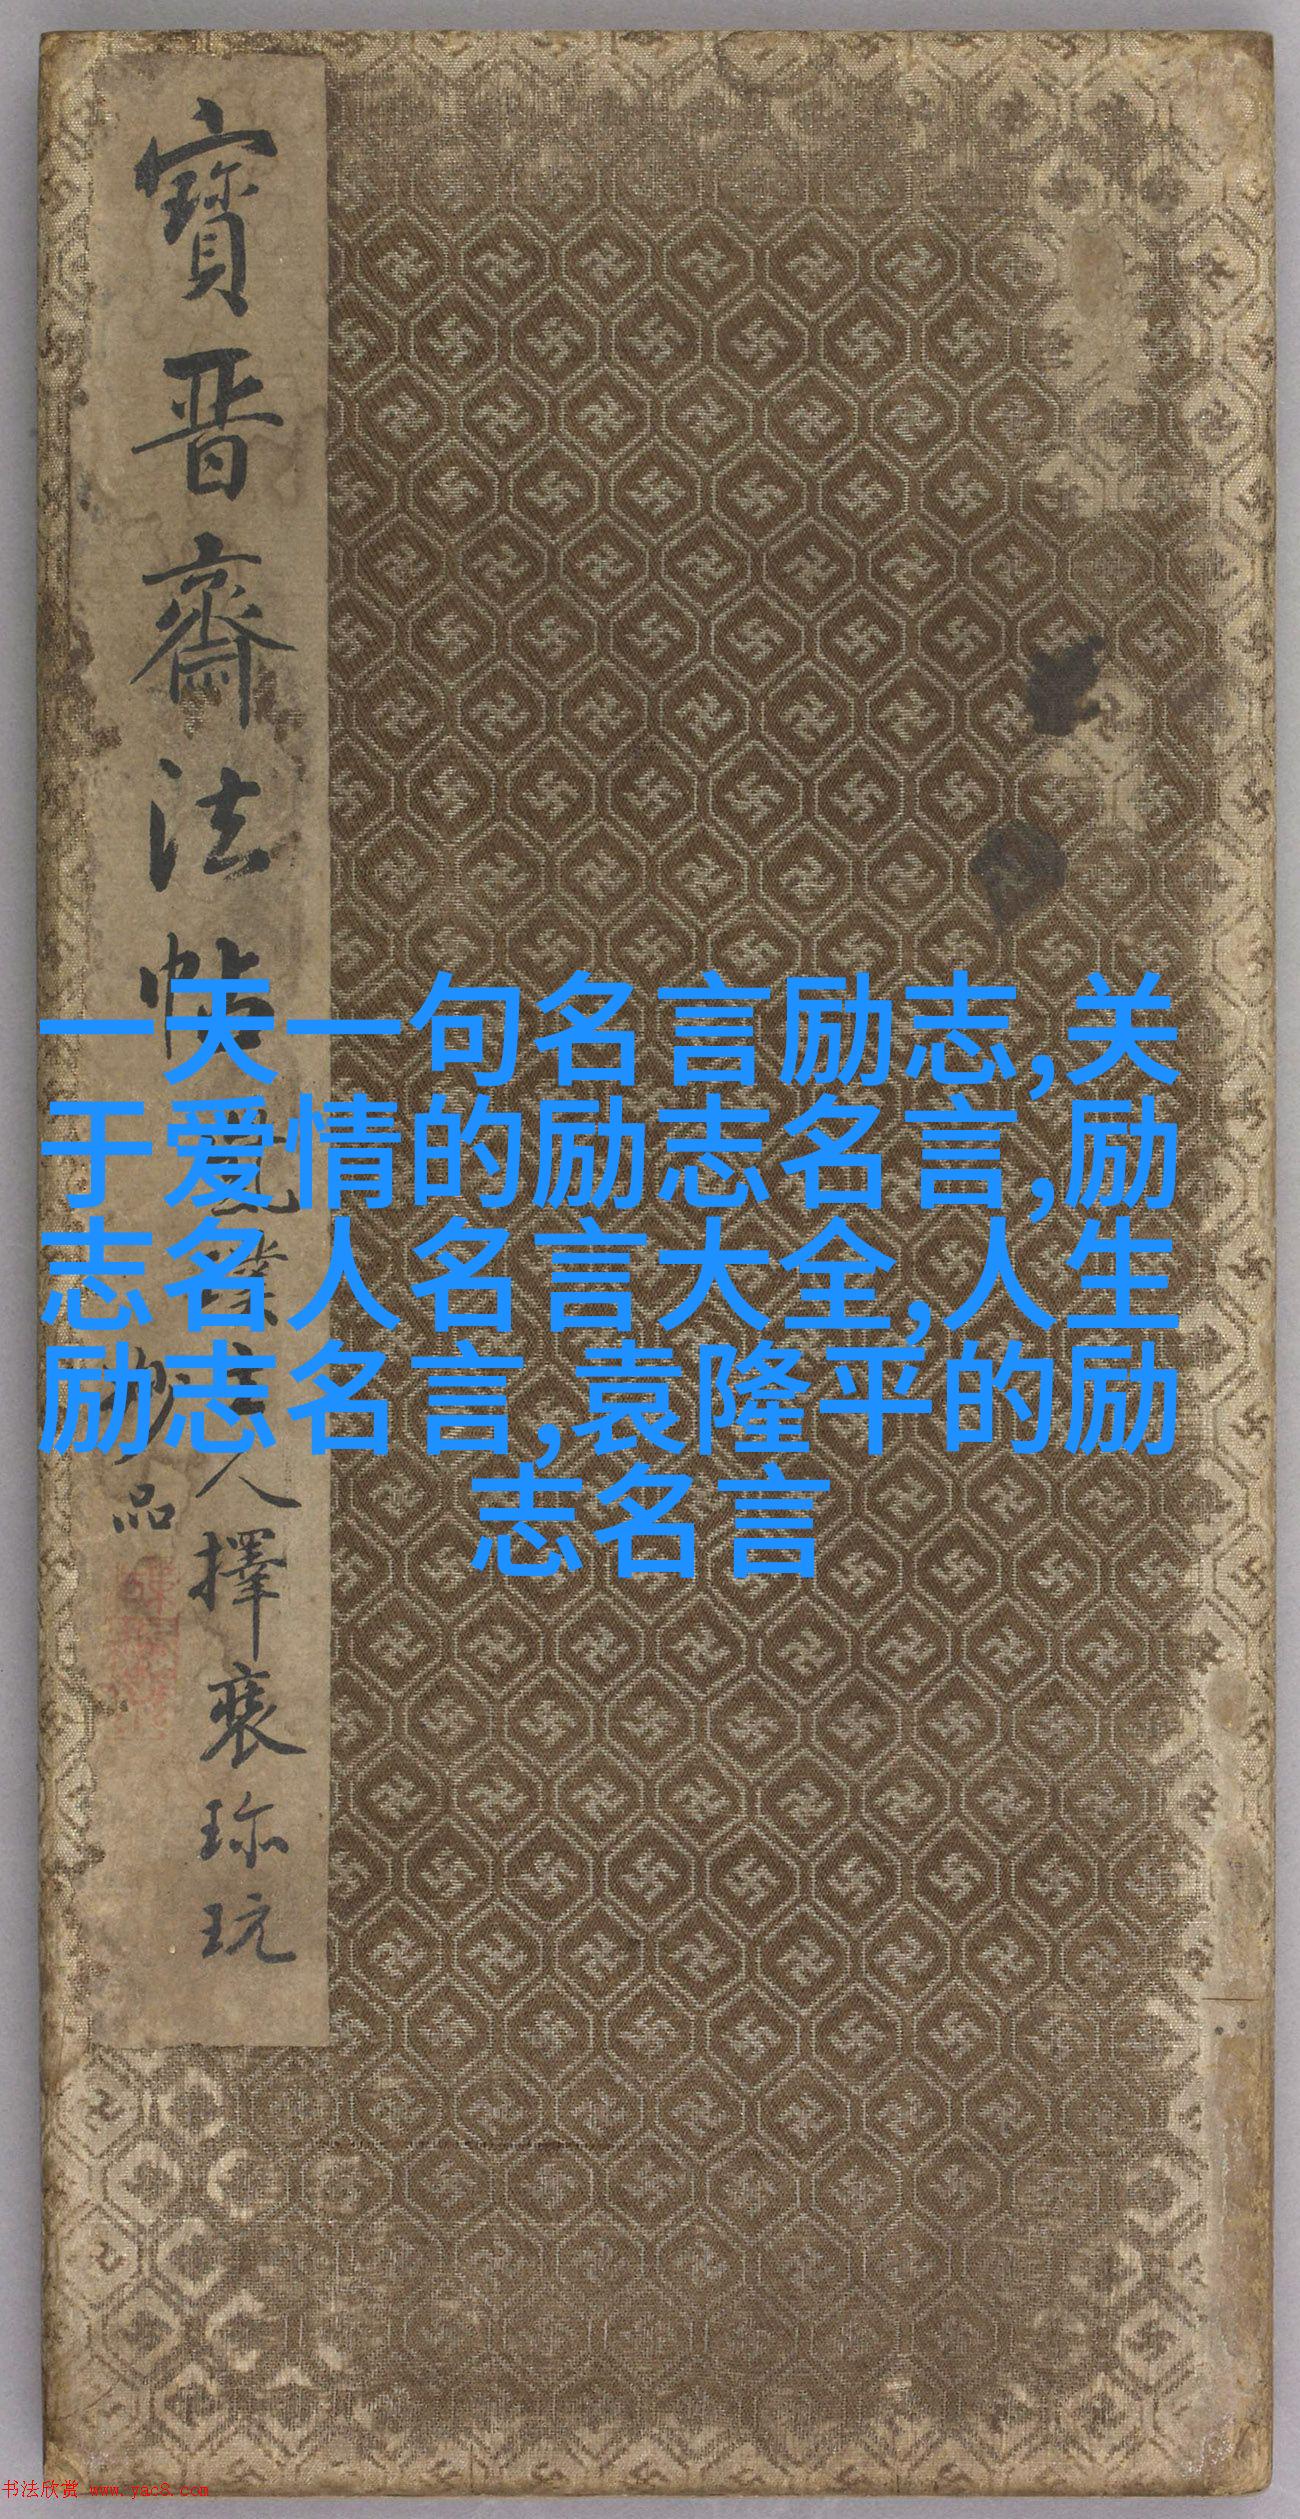 寶晋齋法帖
擇裘珎玩
品
一天一句名言励志,关
于爱情的励志名言,励
志名人名言大全,人生
励志名言,袁隆平的励
志名言
书法欣赏 www.yac8.com